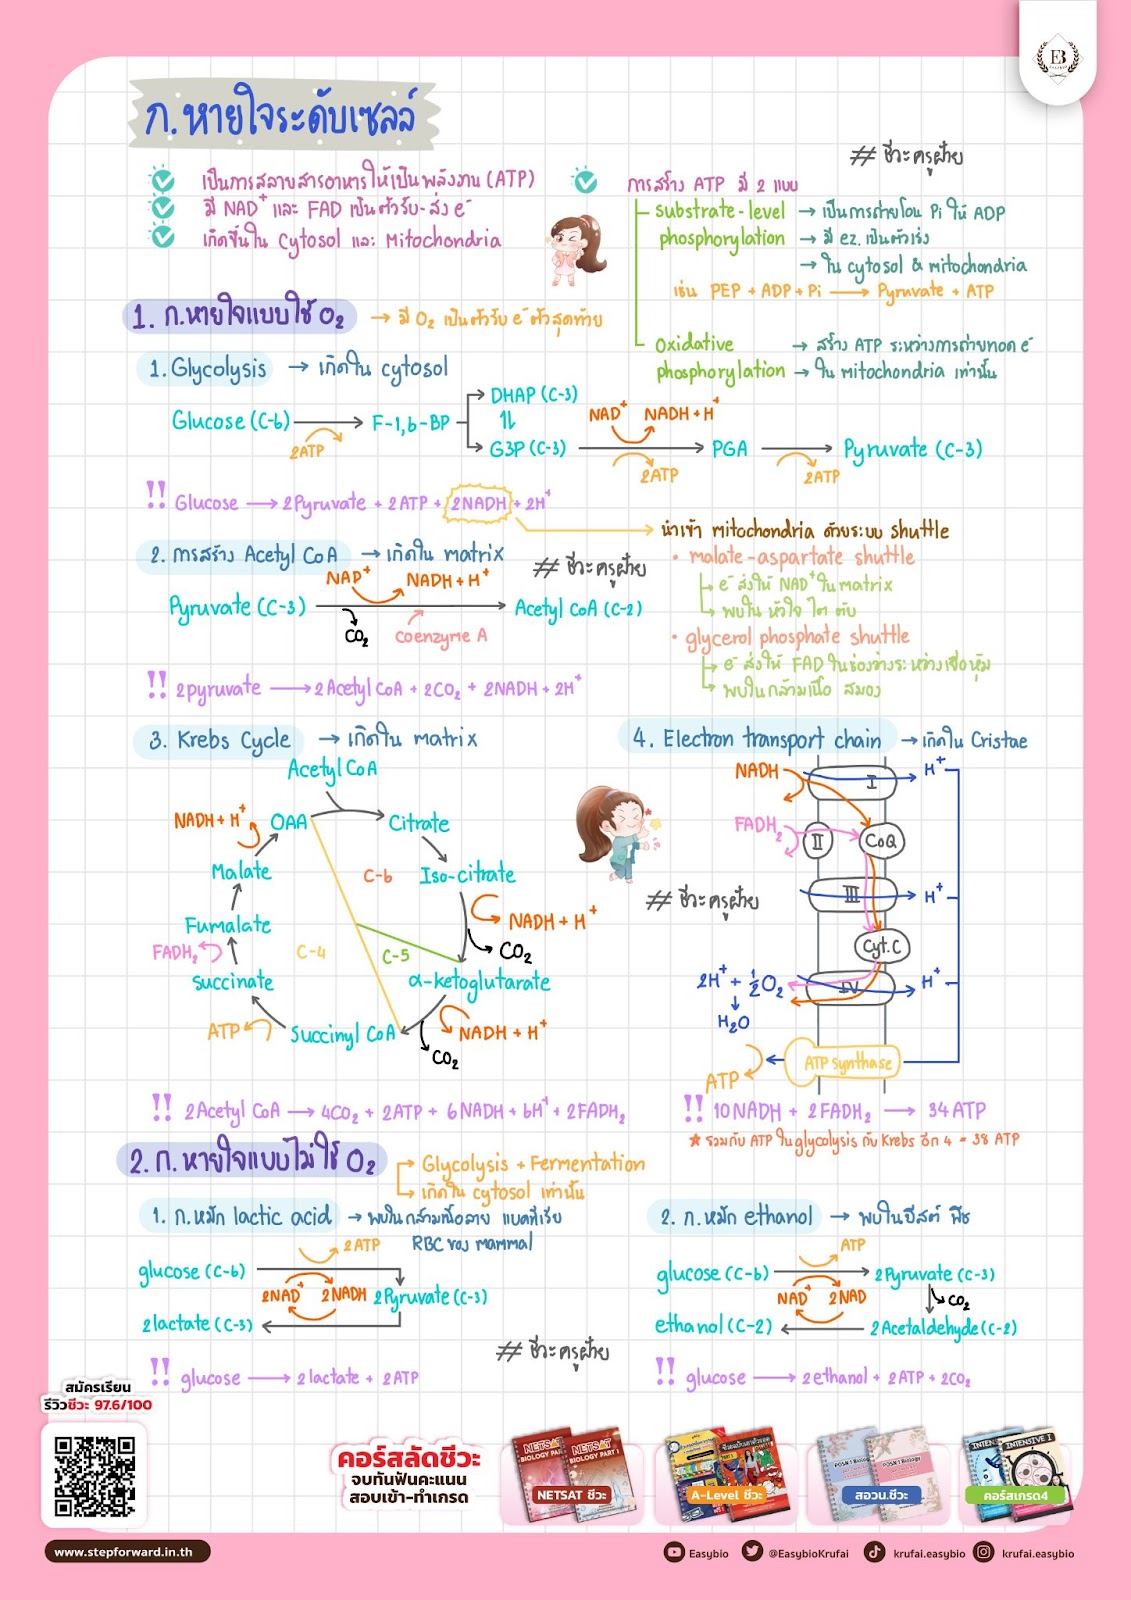 EB
ก.หายใจระดับเซลล์
# ชีวะครูฝ้าย
เป็นการสลายสารอาหารให้เป็นพลังงาน (ATP)
มี NAD+ และ FAD เป็นตัวรับ-ส่ง e-
เกิดขึ้นใน Cytosol และ Mitochondria
การสร้าง ATP มี 2 แบบ
Substrate-level phosphorylation
→ เป็นการถ่ายโอน Pi ให้ ADP
→ มี ez. เป็นตัวเร่ง
→ ใน cytosol & mitochondria
เช่น PEP + ADP + Pi → Pyruvate + ATP
Oxidative phosphorylation
→ สร้าง ATP ระหว่างการถ่ายทอด e-
→ ใน mitochondria เท่านั้น
1. ก.หายใจแบบใช้ O2 → มี O2 เป็นตัวรับ e- ตัวสุดท้าย
1. Glycolysis → เกิดใน cytosol
Glucose (C-6) → F-1,6-BP
2ATP
DHAP (C-3)
G3P (C-3) → PGA → Pyruvate (C-3)
NAD+ NADH + H+
2ATP
2ATP
!! Glucose → 2Pyruvate + 2ATP + 2NADH + 2H+
→ นำเข้า mitochondria ด้วยระบบ shuttle
• malate-aspartate shuttle
→ e- ส่งให้ NAD+ ใน matrix
→ พบใน หัวใจ ไต ตับ
• glycerol phosphate shuttle
→ e- ส่งให้ FAD ในช่องว่างระหว่างเยื่อหุ้ม
→ พบในกล้ามเนื้อ สมอง
2. การสร้าง Acetyl CoA → เกิดใน matrix
# ชีวะครูฝ้าย
NAD+ NADH + H+
Pyruvate (C-3) → Acetyl CoA (C-2)
CO2 coenzyme A
!! 2pyruvate → 2Acetyl CoA + 2CO2 + 2NADH + 2H+
3. Krebs Cycle → เกิดใน matrix
Acetyl CoA
OAA
Citrate
Iso-citrate
NADH + H+
CO2
α-ketoglutarate
NADH + H+
CO2
Succinyl CoA
ATP
Succinate
FADH2
Fumalate
Malate
NADH + H+
C-6
C-5
C-4
!! 2Acetyl CoA → 4CO2 + 2ATP + 6NADH + 6H+ + 2FADH2
4. Electron transport chain → เกิดใน Cristae
NADH
I
H+
FADH2
II
CoQ
III
H+
# ชีวะครูฝ้าย
Cyt.C
2H+ + ½O2
IV
H+
H2O
ATP synthase
ATP
!! 10NADH + 2FADH2 → 34ATP
* รวมกับ ATP ใน glycolysis กับ Krebs อีก 4 = 38 ATP
2. ก.หายใจแบบไม่ใช้ O2
→ Glycolysis + Fermentation
→ เกิดใน cytosol เท่านั้น
1. ก.หมัก lactic acid → พบในกล้ามเนื้อลาย แบคทีเรีย
RBC ของ mammal
2ATP
glucose (C-6)
2NAD+ 2NADH 2Pyruvate (C-3)
2lactate (C-3)
!! glucose → 2lactate + 2ATP
2. ก.หมัก ethanol → พบในยีสต์ พืช
ATP
glucose (C-6) → 2Pyruvate (C-3)
NAD+ 2NAD
CO2
ethanol (C-2) ← 2Acetaldehyde (C-2)
# ชีวะครูฝ้าย
!! glucose → 2ethanol + 2ATP + 2CO2
สมัครเรียน
รีวิวชีวะ 97.6/100
คอร์สลัดชีวะ
จบทันฟันคะแนน
สอบเข้า-ทำเกรด
NETSAT
BIOLOGY PART 1
NETSAT ชีวะ
A-Level ชีวะ
POSN 1 Biology
สอวน.ชีวะ
INTENSIVE I
คอร์สเกรด4
www.stepforward.in.th
Easybio
@EasybioKrufai
krufai.easybio
krufai.easybio